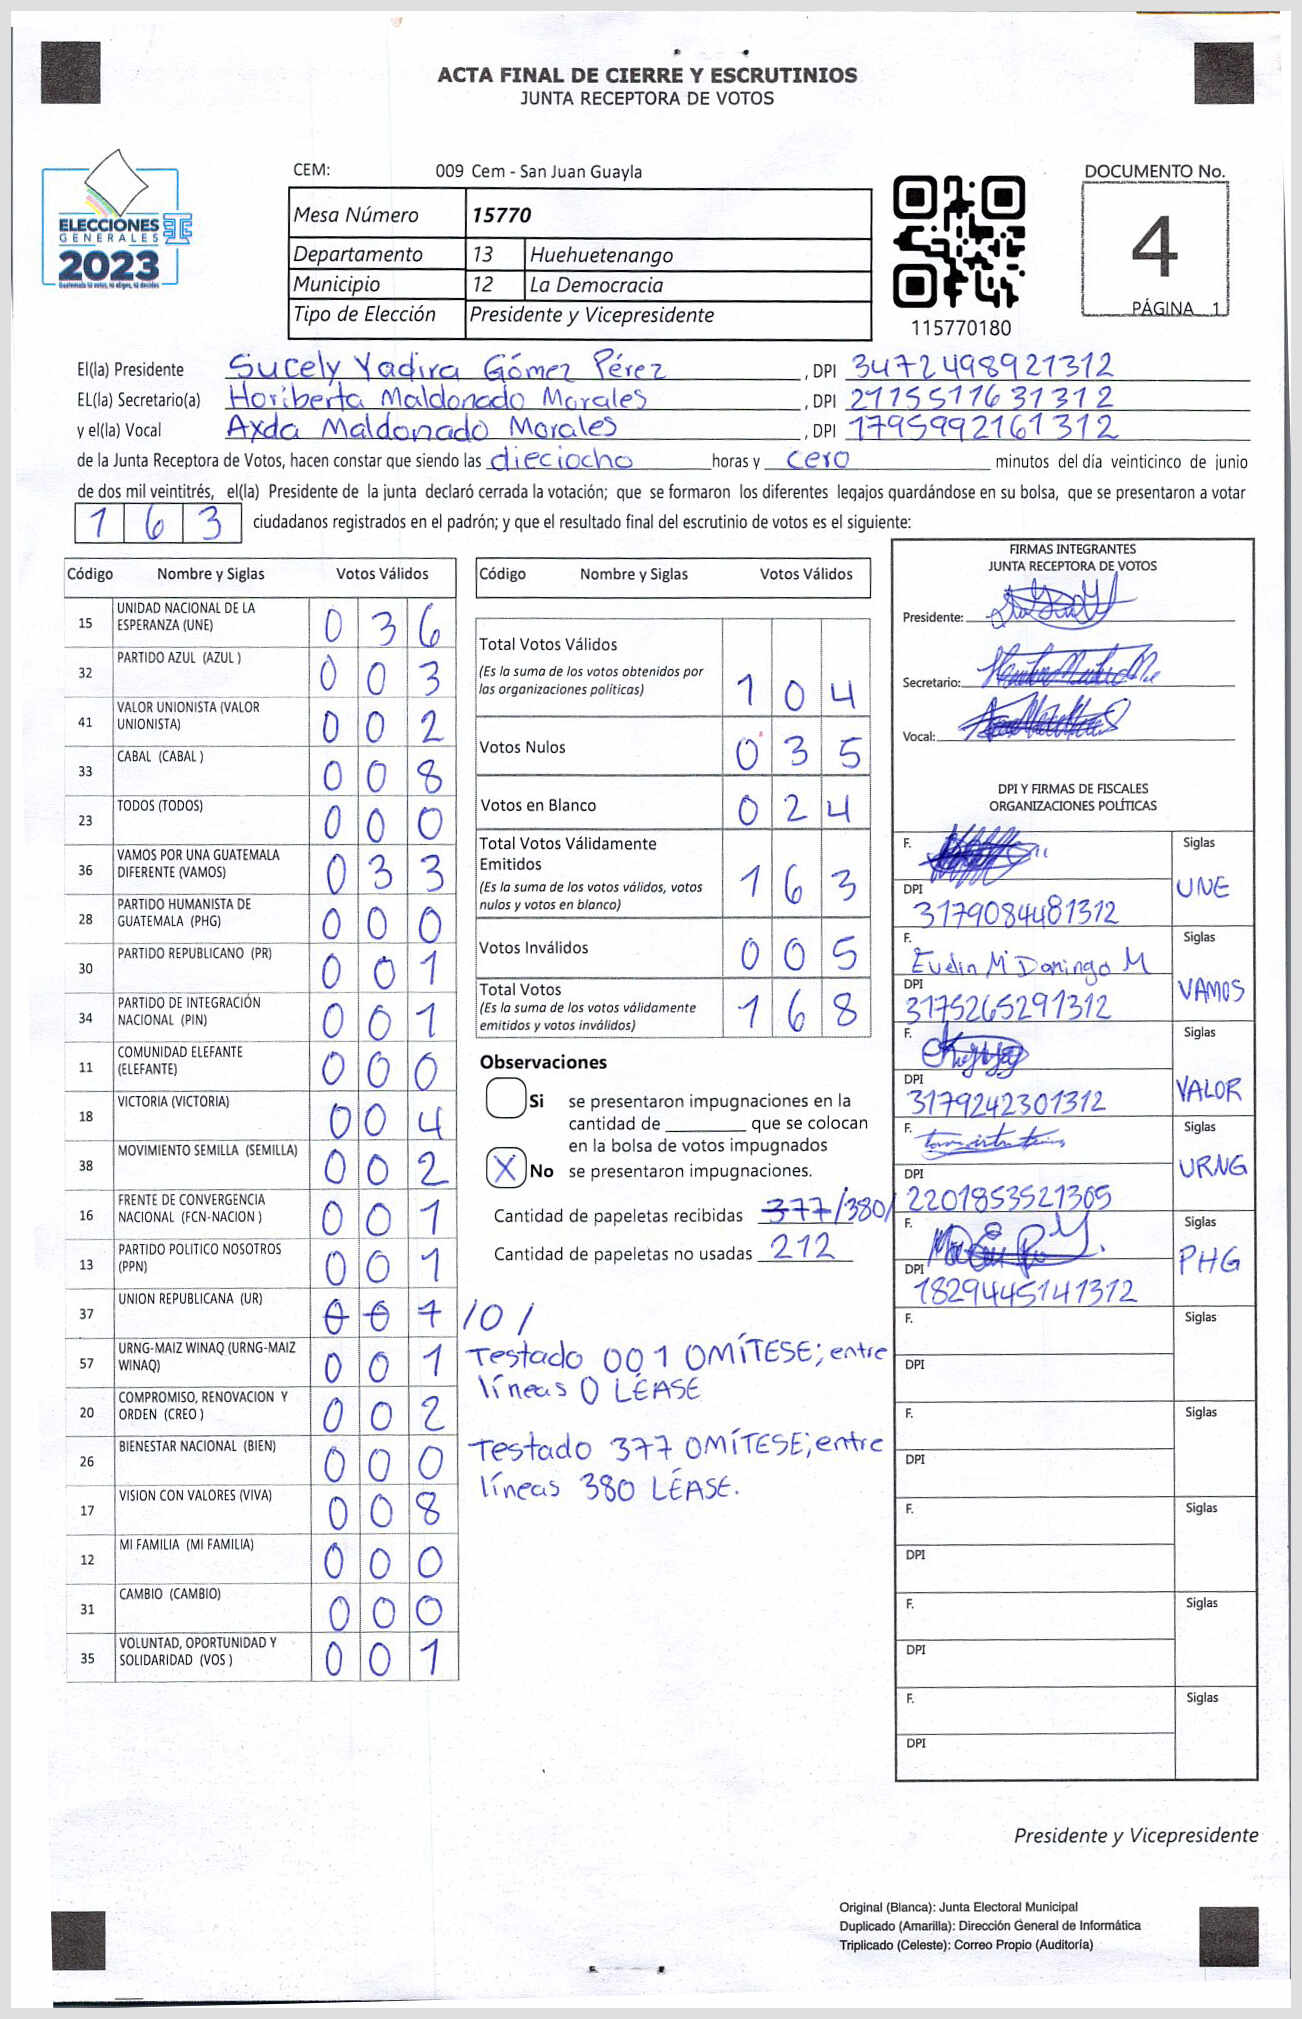 ACTA FINAL DE CIERRE Y ESCRUTINIOS
JUNTA RECEPTORA DE VOTOS
ELECCIONES
GENERALES
2023
Guatemala tú votas, tú eliges, tú decides
CEM: 009 Cem - San Juan Guayla
Mesa Número 15770
Departamento 13 Huehuetenango
Municipio 12 La Democracia
Tipo de Elección Presidente y Vicepresidente
115770180
DOCUMENTO No.
4
PÁGINA 1
El(la) Presidente Sucely Yadira Gómez Pérez , DPI 3472498921312
EL(la) Secretario(a) Horiberta Maldonado Morales , DPI 2115511631312
y el(la) Vocal Axda Maldonado Morales , DPI 1795992161312
de la Junta Receptora de Votos, hacen constar que siendo las dieciocho horas y cero minutos del día veinticinco de junio
de dos mil veintitrés, el(la) Presidente de la junta declaró cerrada la votación; que se formaron los diferentes legajos quardándose en su bolsa, que se presentaron a votar
1 6 3 ciudadanos registrados en el padrón; y que el resultado final del escrutinio de votos es el siguiente:
Código Nombre y Siglas Votos Válidos
15 UNIDAD NACIONAL DE LA
ESPERANZA (UNE) 0 3 6
32 PARTIDO AZUL (AZUL ) 0 0 3
41 VALOR UNIONISTA (VALOR
UNIONISTA) 0 0 2
33 CABAL (CABAL ) 0 0 8
23 TODOS (TODOS) 0 0 0
36 VAMOS POR UNA GUATEMALA
DIFERENTE (VAMOS) 0 3 3
28 PARTIDO HUMANISTA DE
GUATEMALA (PHG) 0 0 0
30 PARTIDO REPUBLICANO (PR) 0 0 1
34 PARTIDO DE INTEGRACIÓN
NACIONAL (PIN) 0 0 1
11 COMUNIDAD ELEFANTE
(ELEFANTE) 0 0 0
18 VICTORIA (VICTORIA) 0 0 4
38 MOVIMIENTO SEMILLA (SEMILLA) 0 0 2
16 FRENTE DE CONVERGENCIA
NACIONAL (FCN-NACION ) 0 0 1
13 PARTIDO POLITICO NOSOTROS
(PPN) 0 0 1
37 UNION REPUBLICANA (UR) 0 0 1 /0/
57 URNG-MAIZ WINAQ (URNG-MAIZ
WINAQ) 0 0 1
20 COMPROMISO, RENOVACION Y
ORDEN (CREO ) 0 0 2
26 BIENESTAR NACIONAL (BIEN) 0 0 0
17 VISION CON VALORES (VIVA) 0 0 8
12 MI FAMILIA (MI FAMILIA) 0 0 0
31 CAMBIO (CAMBIO) 0 0 0
35 VOLUNTAD, OPORTUNIDAD Y
SOLIDARIDAD (VOS ) 0 0 1
Código Nombre y Siglas Votos Válidos
Total Votos Válidos
(Es la suma de los votos obtenidos por
las organizaciones políticas) 1 0 4
Votos Nulos 0 3 5
Votos en Blanco 0 2 4
Total Votos Válidamente
Emitidos
(Es la suma de los votos válidos, votos
nulos y votos en blanco) 1 6 3
Votos Inválidos 0 0 5
Total Votos
(Es la suma de los votos válidamente
emitidos y votos inválidos) 1 6 8
Observaciones
Si se presentaron impugnaciones en la
cantidad de ________ que se colocan
en la bolsa de votos impugnados
X No se presentaron impugnaciones.
Cantidad de papeletas recibidas 377/380/
Cantidad de papeletas no usadas 212
Testado 001 OMÍTESE; entre
líneas 0 LÉASE
Testado 377 OMÍTESE; entre
líneas 380 LÉASE.
FIRMAS INTEGRANTES
JUNTA RECEPTORA DE VOTOS
Presidente:
Secretario:
Vocal:
DPI Y FIRMAS DE FISCALES
ORGANIZACIONES POLÍTICAS
F. Siglas
DPI UNE
3179084481312
F. Siglas
Evelin M Domingo M
DPI VAMOS
3175265291312
F. Siglas
DPI VALOR
3179242301312
F. Siglas
DPI URNG
2201853521305
F. Siglas
DPI PHG
1829445141312
F. Siglas
DPI
F. Siglas
DPI
F. Siglas
DPI
F. Siglas
DPI
F. Siglas
DPI
Presidente y Vicepresidente
Original (Blanca): Junta Electoral Municipal
Duplicado (Amarilla): Dirección General de Informática
Triplicado (Celeste): Correo Propio (Auditoría)